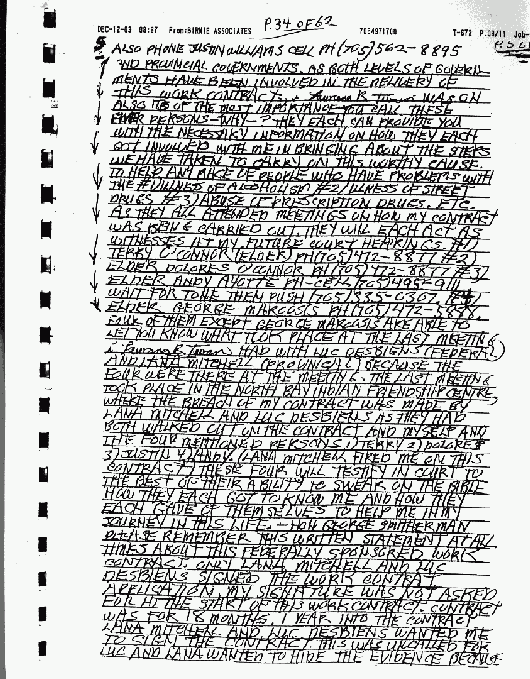 P.34 OF 62
DEC-12-03 08:57 From:BIRNIE ASSOCIATES 7054971708 T-672 P.08/11 Job-
5 ALSO PHONE JUSTIN WILLIAMS CELL PH (705) 562-8895
AND PROVINCIAL GOVERNMENTS. AS BOTH LEVELS OF GOVERN-
MENTS HAVE BEEN INVOLVED IN THE DELIVERY OF
THIS WORK CONTRACT. WAS ON
ALSO ITS OF THE MOST IMPORTANCE YOU CALL THESE
PERSONS - WHY - ? THEY EACH CAN PROVIDE YOU
WITH THE NECESSARY INFORMATION ON HOW THEY EACH
GOT INVOLVED WITH ME IN BRINGING ABOUT THE STEPS
WE HAVE TAKEN TO CARRY ON THIS WORTHY CAUSE.
TO HELP ANY RACE OF PEOPLE WHO HAVE PROBLEMS WITH
THE #1 ILLNESS OF ALCOHOLISM #2/ILLNESS OF STREET
DRUGS #3/ABUSE OF PRESCRIPTION DRUGS. ETC.
AS THEY ALL ATTENDED MEETINGS ON HOW MY CONTRACT
WAS BEING CARRIED OUT. THEY WILL EACH ACT AS
WITNESSES AT MY FUTURE COURT HEARINGS. #1)
TERRY O'CONNOR (ELDER) PH (705) 472-8877 #2)
ELDER DOLORES O'CONNOR PH (705) 472-8877 #3)
ELDER ANDY AYOTTE PH-CELL (705) 495-9111
WAIT FOR TONE THEN PUSH (705) 335-0367. #4)
ELDER GEORGE MARCOSIS PH (705) 472-3898.
FOUR OF THEM EXCEPT GEORGE MARCOSIS ARE ABLE TO
LET YOU KNOW WHAT TOOK PLACE AT THE LAST MEETING
HAD WITH LUC DESBIENS (FEDERAL)
AND LANA MITCHELL (PROVINCIAL) BECAUSE THE
FOUR WERE THERE AT THE MEETING. THE LAST MEETING
TOOK PLACE IN THE NORTH BAY INDIAN FRIENDSHIP CENTRE,
WHERE THE BREACH OF MY CONTRACT WAS MADE BY
LANA MITCHELL AND LUC DESBIENS AS THEY HAD
BOTH WALKED OUT ON THE CONTRACT AND MYSELF AND
THE FOUR MENTIONED PERSONS 1) TERRY 2) DOLORES
3) JUSTIN 4) ANDY. (LANA MITCHELL FIRED ME ON THIS
CONTRACT) THESE FOUR WILL TESTIFY IN COURT TO
THE BEST OF THEIR ABILITY TO SWEAR ON THE BIBLE
HOW THEY EACH GOT TO KNOW ME AND HOW THEY
EACH GAVE OF THEMSELVES TO HELP ME IN MY
JOURNEY IN THIS LIFE. - HON GEORGE SMITHERMAN
PLEASE REMEMBER THIS WRITTEN STATEMENT AT ALL
TIMES ABOUT THIS FEDERALLY SPONSORED WORK
CONTRACT. ONLY LANA MITCHELL AND LUC
DESBIENS SIGNED THE WORK CONTRAT
APPLICATION. MY SIGNATURE WAS NOT ASKED
FOR AT THE START OF THIS WORK CONTRACT. CONTRACT
WAS FOR 18 MONTHS. 1 YEAR INTO THE CONTRACT
LANA MITCHELL AND LUC DESBIENS WANTED ME
TO SIGN THE CONTRACT THIS WAS UNCALLED FOR
LUC AND LANA WANTED TO HIDE THE EVIDENCE BECAUSE